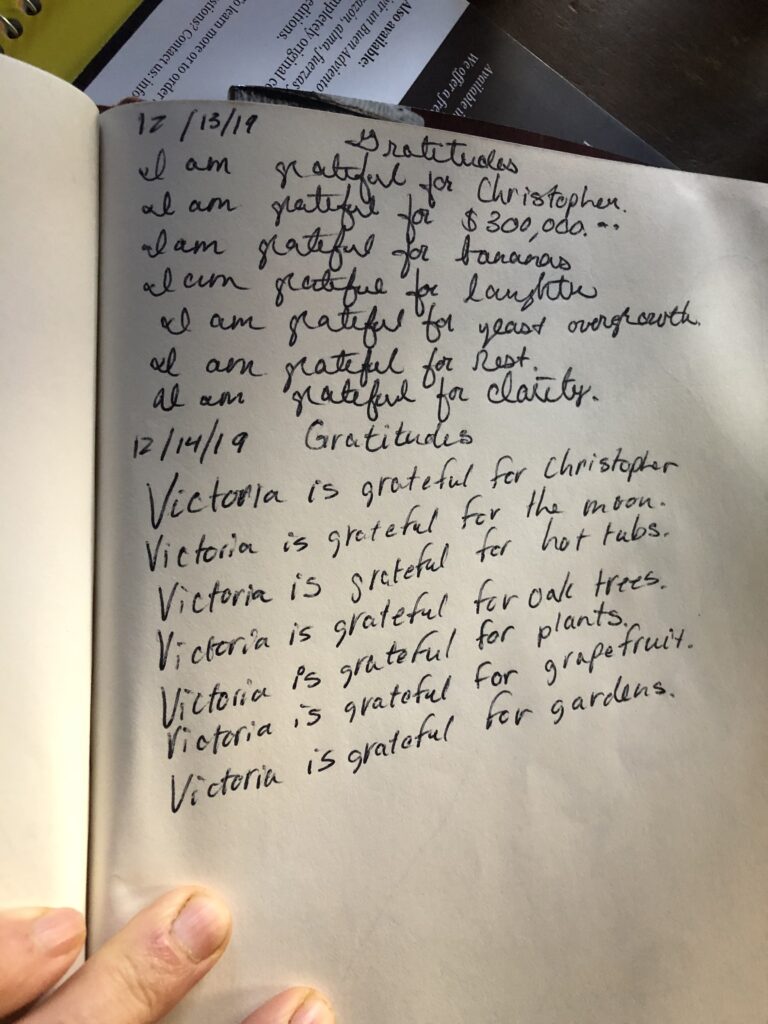 To learn more or to order
estions? Contact us: info
Also available:
vir un Buen Adviento
razón, alma, fuerzas
mpletely original co
editions.
Available i
We offer a fre
12/13/19
Gratitudes
I am grateful for Christopher.
I am grateful for $300,000...
I am grateful for bananas
I am grateful for laughter
I am grateful for yeast overgrowth.
I am grateful for Rest.
I am grateful for clarity.
12/14/19 Gratitudes
Victoria is grateful for Christopher
Victoria is grateful for the moon.
Victoria is grateful for hot tubs.
Victoria is grateful for oak trees.
Victoria is grateful for plants.
Victoria is grateful for grapefruit.
Victoria is grateful for gardens.